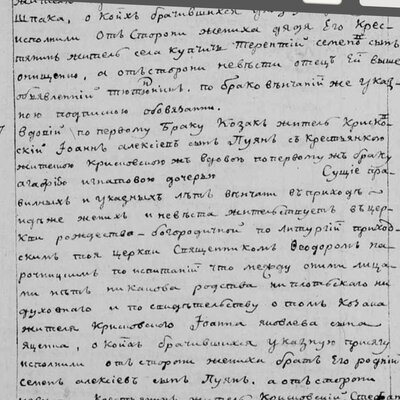 Шпака, о коихъ брачившихся указную
исполнили отъ стороны жениха дядя его Крес-
тянинъ житель села купчичъ терентій семеновъ сынъ
онищенко, а отъ стороны невѣсты отецъ ей выше
объявленній тютюнникъ. по брако вѣнчаній же указ-
ною подпискою обовязани.
Вдовій по первому браку Козакъ житель Крисков-
скій Іоаннъ алексіевъ сынъ Луянъ съ крестьянкою
жителкою Крисковскою жъ вдовою по первому жъ браку
агафіею игнатовою дочерью Сущіе пра-
вилныхъ и указныхъ лѣтъ вѣнчани въ приходѣ
идѣже женихъ и невѣста жителствуетъ въ цер-
кви рождества-богородичной по литургіи приход-
скимъ тоя церкви Священникомъ Феодоромъ на-
рочницкимъ по испитаніи что между оними лица-
ми нѣтъ никакова родства ни плотскаго ни
духовнаго и по свидѣтельству о томъ козака
жителя Крисковского Іоанна яковлева сына
яценка, о коихъ брачившихся указную присягу
исполнили отъ стороны жениха братъ его родній
семенъ алексіевъ сынъ Луянъ, а отъ стороны
Крестьянинъ житель Крисковскій Стефанъ